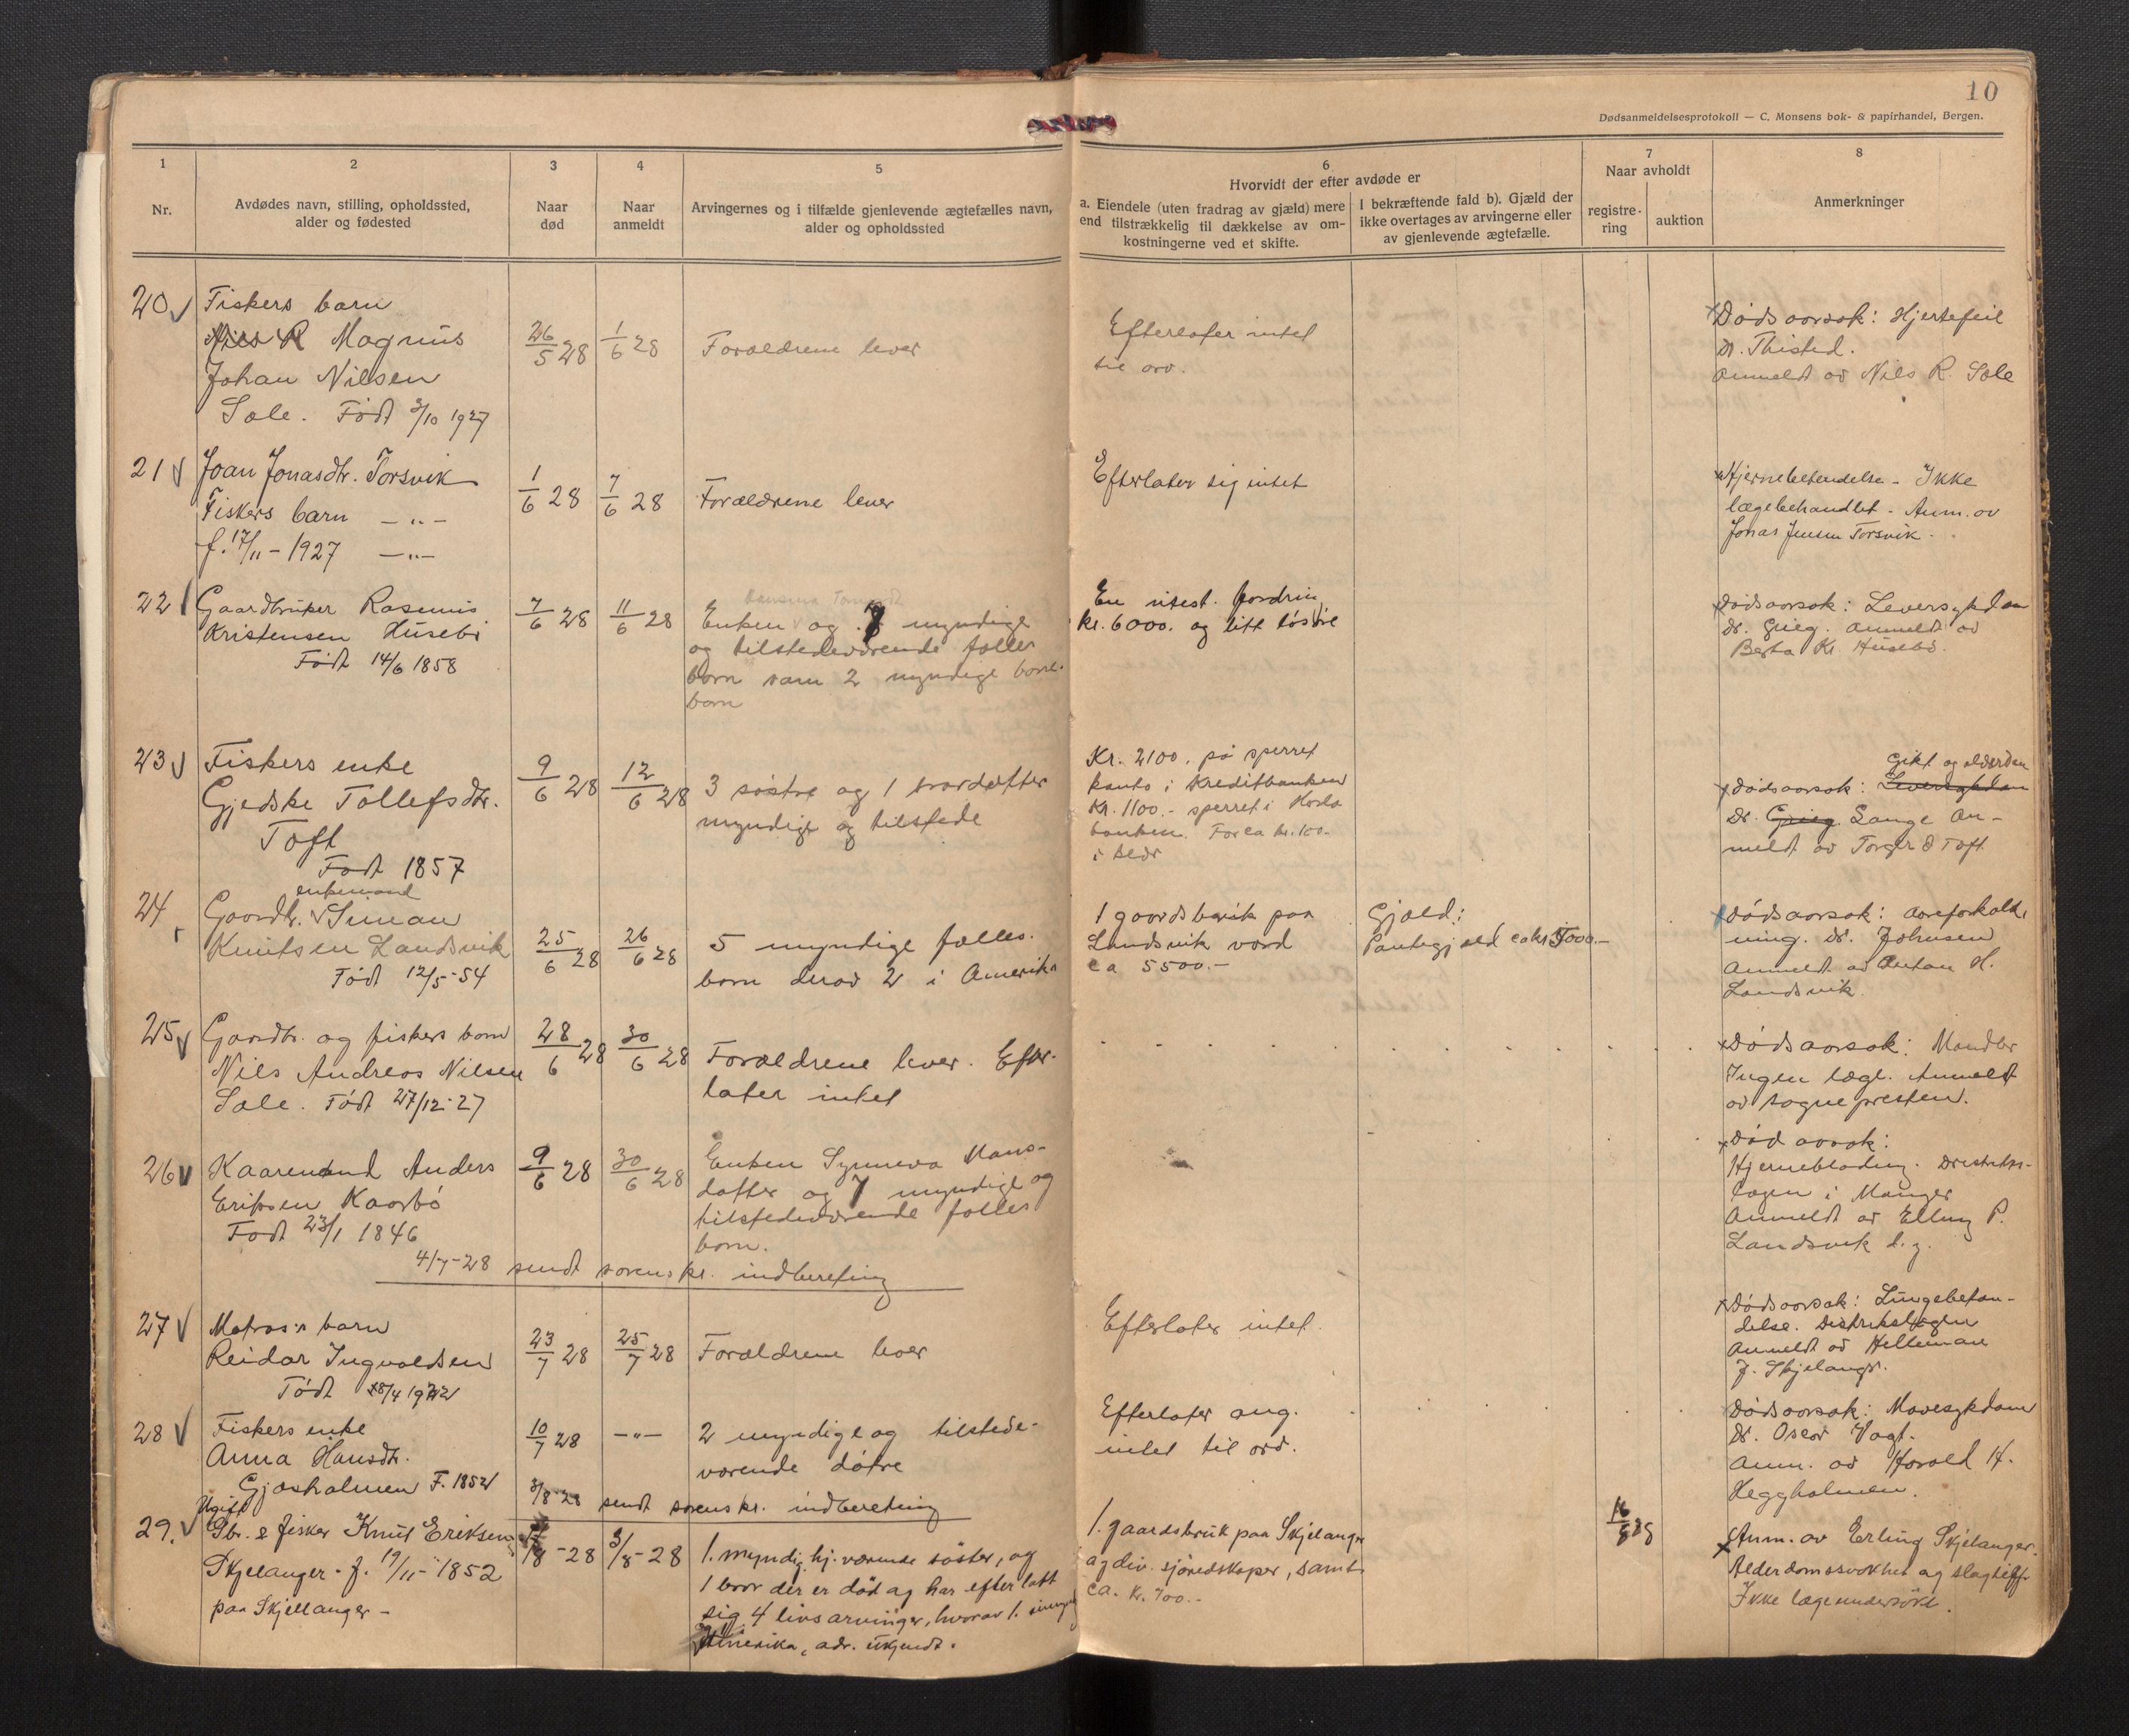 10
Dødsanmeldelsesprotokoll — C. Monsens bok- & papirhandel, Bergen.
1
2
3
4
5
6
7
8
Nr.
Avdødes navn, stilling, opholdssted,
alder og fødested
Naar
død
Naar
anmeldt
Arvingernes og i tilfælde gjenlevende ægtefælles navn,
alder og opholdssted
Hvorvidt der efter avdøde er
a. Eiendele (uten fradrag av gjæld) mere
end tilstrækkelig til dækkelse av om-
kostningerne ved et skifte.
I bekræftende fald b). Gjæld der
ikke overtages av arvingerne eller
av gjenlevende ægtefælle.
Naar avholdt
registre-
ring
auktion
Anmerkninger
20
Fiskers barn
Magnus
Johan Nilsen
Sole. Født 3/10 1927
26/5 28
1/6 28
Forældrene lever
Efterlater intet
til arv.
Dødsaarsak: Hjertefeil
Dr. Thisted.
Anmeldt av Nils R. Sole
21
Joan Jonasdtr. Torsvik
Fiskers barn —„—
f. 17/11 - 1927 —„—
1/6 28
7/6 28
Forældrene lever
Efterlater sig intet
Hjernebetendelse - Ikke
lægebehandlet - Anm. av
Jonas Jensen Torsvik.
22
Gaardbruker Rasmus
Kristensen Husebø
Født 14/6 1858
7/6 28
11/6 28
Enken og 7 myndige
og tilstedeværende fælles
børn samt 2 myndige barne-
børn
En utest. fordring
kr. 6000. og litt løsøre
Dødsaarsak: Leversykdom
Dr. Grieg. Anmeldt av
Berta Kr. Husebø.
23
Fiskers enke
Gjedske Tollefsdtr.
Toft
Født 1857
9/6 28
12/6 28
3 søstre og 1 brordatter
myndige og tilstede
Kr. 2100. på sperret
konto i Kreditbanken
Kr. 1100.- sperret i Horda
banken. For ca kr. 100.-
i klær
Gikt og alderdom
Dødsaarsak: Leversykdom
Dr. Grieg. Lange An-
meldt av Torger O Toft
24
enkemand
Gaardbr. Simon
Knutsen Landsvik
Født 12/5-54
25/6 28
26/6 28
5 myndige fælles.
børn derav 2 i Amerika
1 gaardsbruk paa
Landsvik værd
ca 5500.-
Gjæld:
Pantegjæld ca kr 5000.-
Dødsaarsak: Aareforkalk-
ning. Dr. Johnsen
Anmeldt av Anton H.
Landsvik
25
Gaardbr. og fiskers barn
Nils Andreas Nilsen
Sole. Født 27/12-27
28/6 28
30/6 28
Forældrene lever. Efter-
later intet
Dødsaarsak:
Ingen læge. Anmeldt
av sognepresten.
26
Kaaremand Anders
Eriksen Kaarbø
Født 23/1 1846
9/6 28
30/6 28
Enken Synneva Mons-
datter og 7 myndige og
tilstedeværende fælles
børn.
Død aarsak:
Hjerneblødning. Distrikts-
lægen i Manger
Anmeldt av Elling P.
Landsvik
4/7-28 sendt sorenskr. indberetning
27
Matros's barn
Reidar Ingvaldsen
Født 18/4 1922
23/7 28
25/7 28
Forældrene lever
Efterlater intet.
Dødsaarsak: Lungebeten-
delse. Distriktslægen
Anmeldt av Helleman
J. Skjelanger.
28
Fiskers enke
Anna Hansdtr.
Gjøsholmen F. 1852
10/7 28
—„—
2 myndige og tilstede-
værende døtre
Efterlater ang.
intet til arv.
Dødsaarsak: Mavesykdom
Dr. Oscar Vogt.
Anm. av Harald H.
Heggholmen.
3/8-28 sendt sorenskr. indberetning
29.
Ugift
Gbr. & fisker Knut Eriksen
Skjelanger - f. 19/11 - 1852
paa Skjellanger -
3/8 - 28
1. myndig hj. værende søster, og
1 bror der er død og har efterlatt
sig 4 livsarvinger, hvorav 1.
Amerika, adr. ukjendt.
1. gaardsbruk paa Skjelanger
og div. sjøredskaper, samt
ca. kr. 700.-
16/8 28
Anm. av Erling Skjelanger.
Alderdomssvakhet og slagtilf.
Ikke lægeundersøkt.